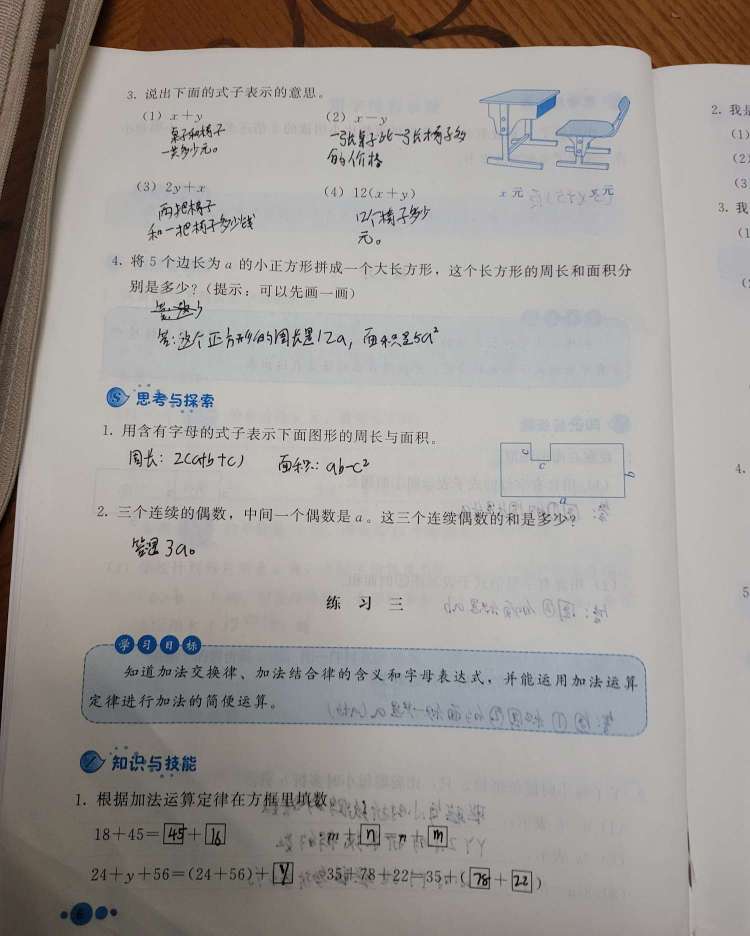 3. 说出下面的式子表示的意思。
(1) x+y (2) x-y
桌子和椅子
一共多少元。
一张桌子比一张椅子多
的价格
(3) 2y+x (4) 12(x+y) x 元 y 元
两把椅子
和一把椅子多少钱
12个椅子多少
元。
4. 将 5 个边长为 a 的小正方形拼成一个大长方形，这个长方形的周长和面积分
别是多少？(提示：可以先画一画)
答:这个正方形的周长是12a，面积是5a²
思考与探索
1. 用含有字母的式子表示下面图形的周长与面积。
周长：2(a+b+c) 面积：ab-c²
c
c
b
a
2. 三个连续的偶数，中间一个偶数是 a。这三个连续偶数的和是多少？
答是3a。
练 习 三
学习目标
知道加法交换律、加法结合律的含义和字母表达式，并能运用加法运算
定律进行加法的简便运算。
知识与技能
1. 根据加法运算定律在方框里填数。
18+45=45+16 m+n=n+m
24+y+56=(24+56)+y 35+78+22=35+(78+22)
6
2. 我是
(1)
(2)
(3)
3. 我
(1
(2
4.
5